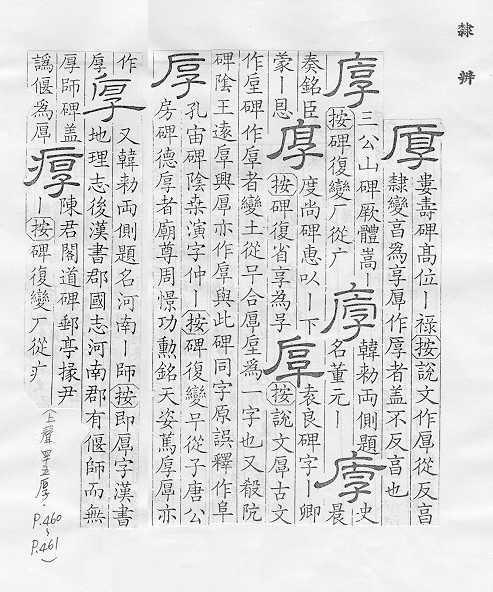 隸辨
厚 婁壽碑高位｜祿按說文作厚從反亯
隸變亯為享厚作厚者盖不反亯也
三公山碑厥體嵩｜
按碑復變厂從广
韓勑兩側題
名董元｜
史晨
奏銘臣
蒙｜恩
度尚碑惠以｜下
按碑復省享為㝵
袁良碑字｜卿
按說文厚古文
作垕碑作厚者變土從㝵合厚垕為一字也又殽阬
碑陰王遠厚興厚亦作厚與此碑同字原誤釋作阜
厚 孔宙碑陰桒演字仲｜按碑復變㝵從子唐公
房碑德厚者廟尊周憬功勲銘天姿篤厚厚亦
作
厚
又韓勑兩側題名河南｜師按即厚字漢書
地理志後漢書郡國志河南郡有偃師而無
厚師碑盖
譌偃為厚
陳君閣道碑郵亭掾尹
｜按碑復變厂從疒
上聲 四十五厚.
P.460
~
P.461